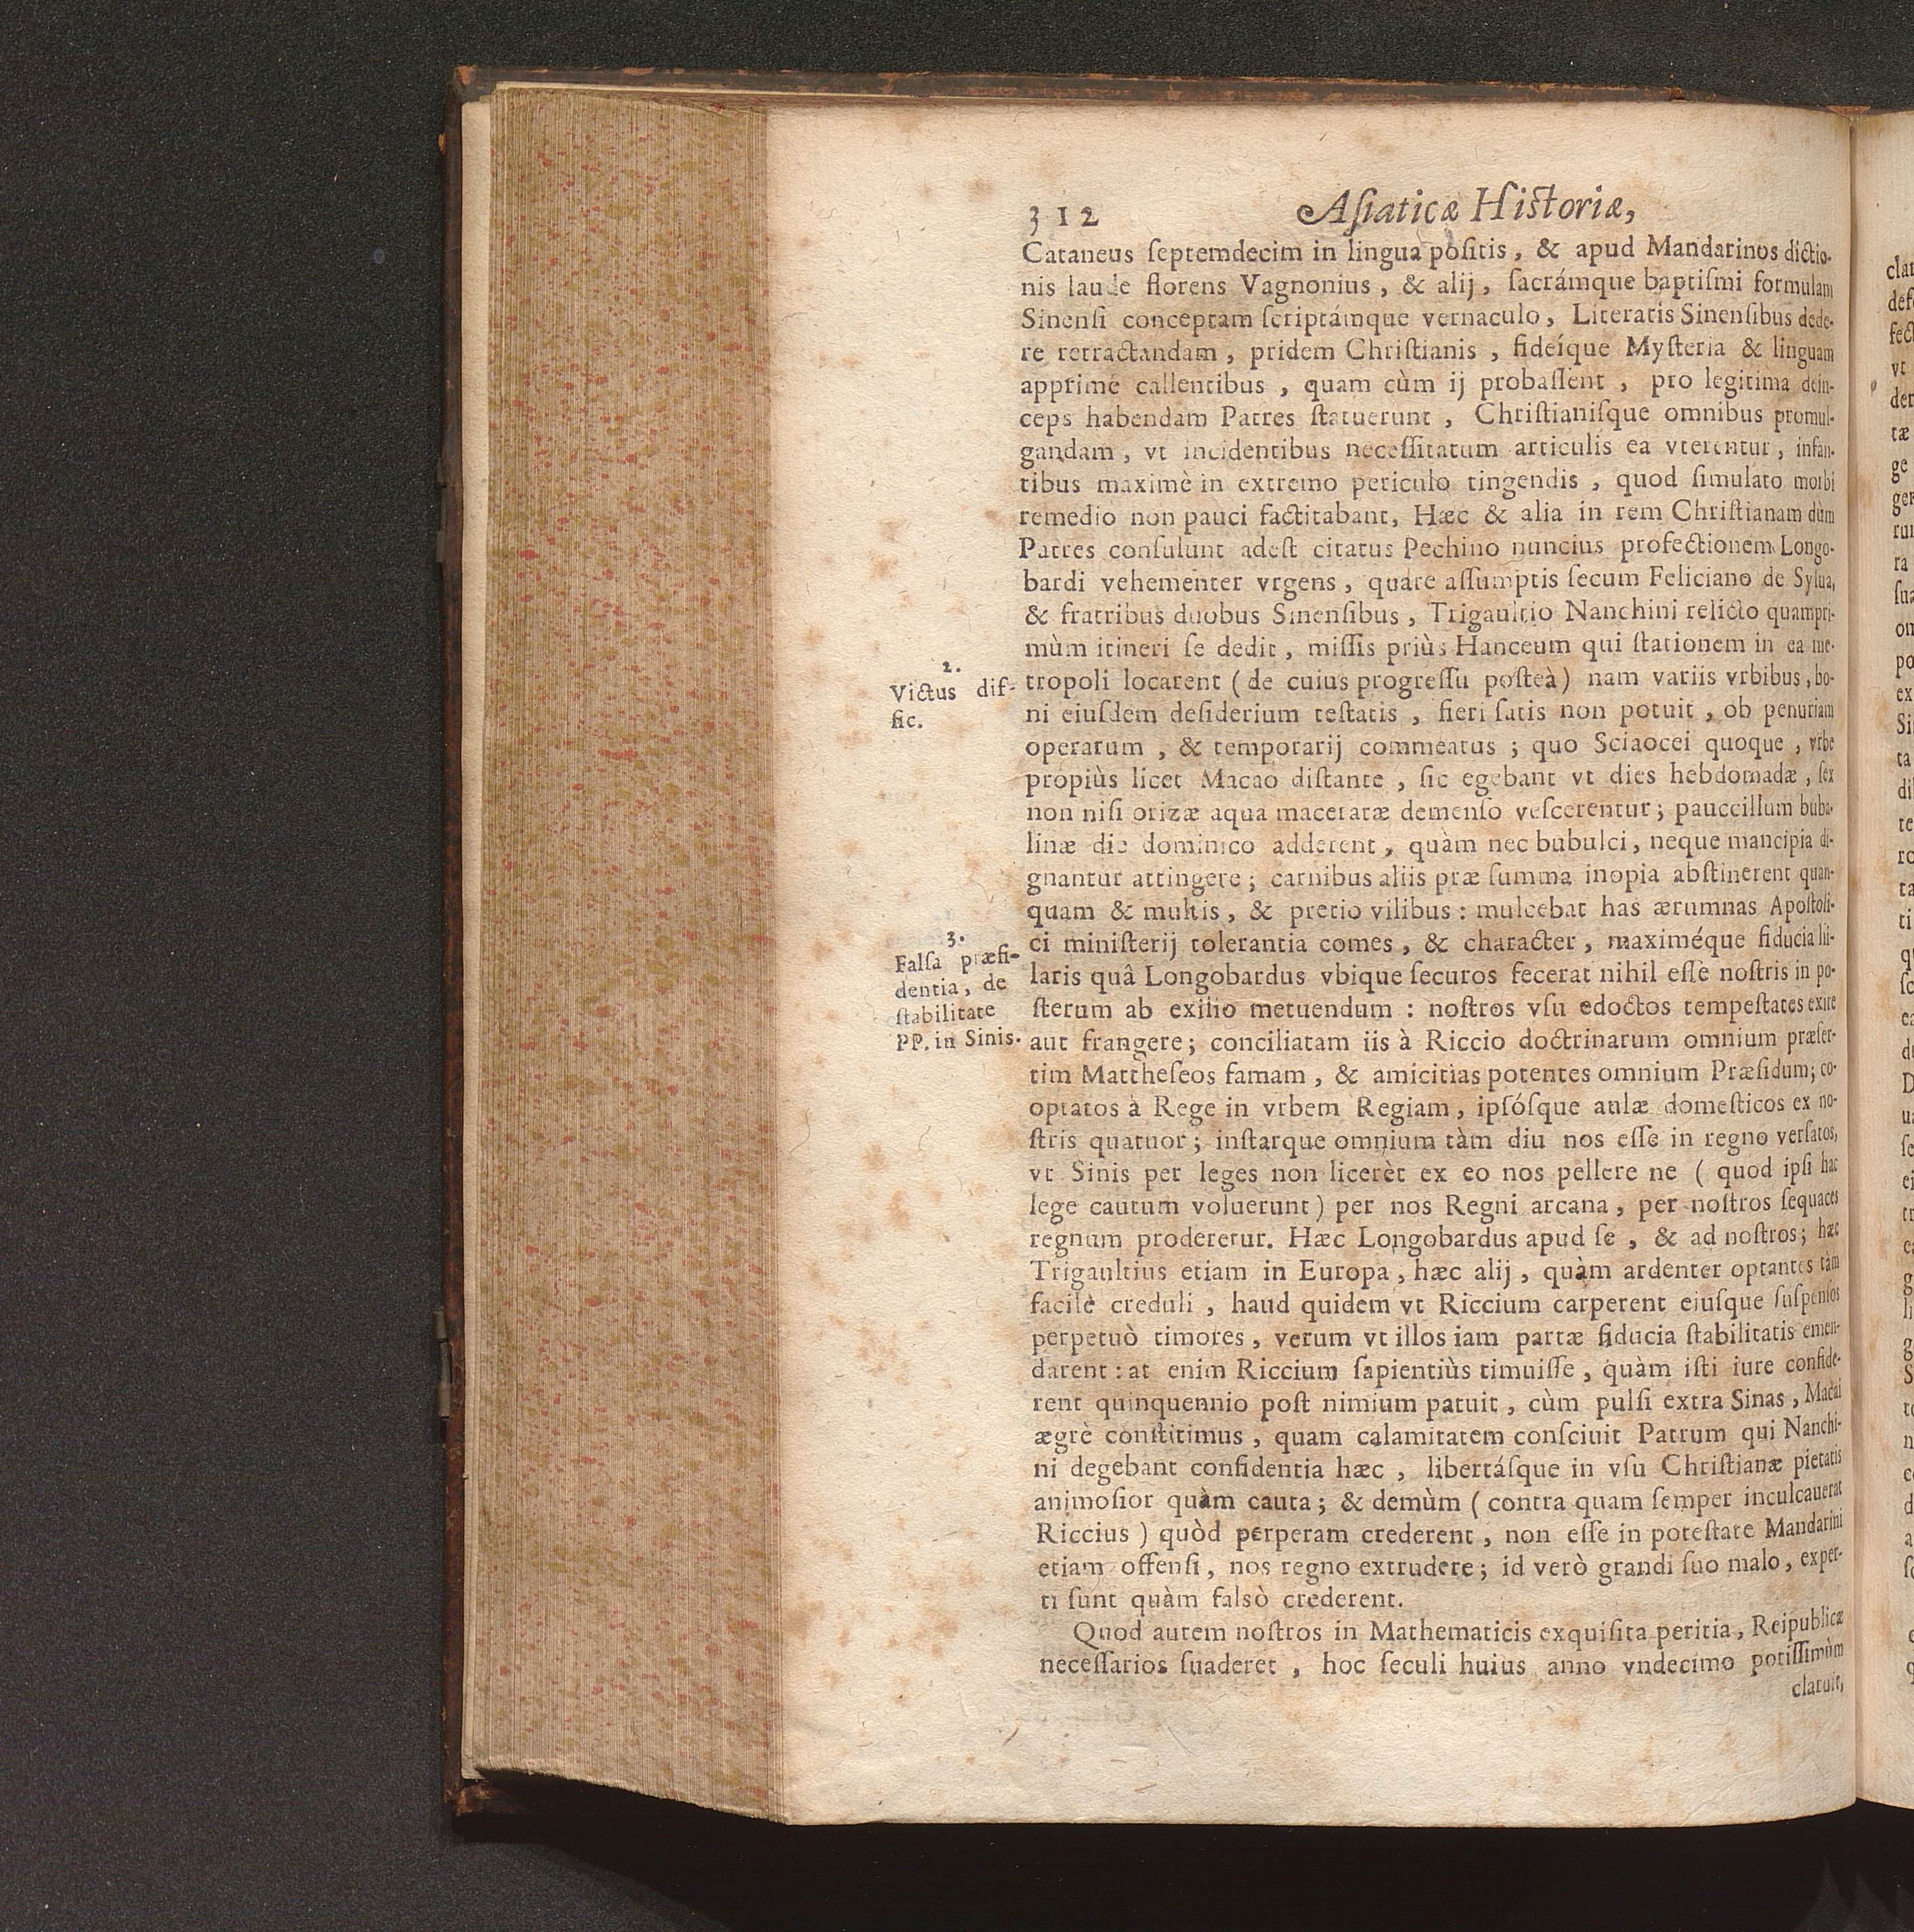 312 Asiaticæ Historiæ,
Cataneus ſeptemdecim in lingua poſitis, & apud Mandarinos dictio-
nis laude florens Vagnonius, & alij, ſacrámque baptiſmi formulam
Sinenſi conceptam ſcriptámque vernaculo, Literatis Sinenſibus dede-
re retractandam, pridem Chriſtianis, fideíque Myſteria & linguam
apprimè callentibus, quam cùm ij probaſſent, pro legitima dein-
ceps habendam Patres ſtatuerunt, Chriſtianiſque omnibus promul-
gandam, vt incidentibus neceſſitatum articulis ea vterentur, infan-
tibus maximè in extremo periculo tingendis, quod ſimulato morbi
remedio non pauci factitabant, Hæc & alia in rem Chriſtianam dùm
Patres conſulunt adeſt citatus Pechino nuncius profectionem Longo-
bardi vehementer vrgens, quare aſſumptis ſecum Feliciano de Sylua,
& fratribus duobus Sinenſibus, Trigaultio Nanchini relicto quampri-
mùm itineri ſe dedit, miſſis priùs Hanceum qui ſtationem in ea me-
2.
Victus dif-
fic.
tropoli locarent (de cuius progreſſu poſteà) nam variis vrbibus, bo-
ni eiuſdem deſiderium teſtatis, fieri ſatis non potuit, ob penuriam
operarum, & temporarij commeatus; quo Sciaocei quoque, vrbe
propiùs licet Macao diſtante, ſic egebant vt dies hebdomadæ, ſex
non niſi orizæ aqua maceratæ demenſo veſcerentur; pauccillum buba-
linæ die dominico adderent, quàm nec bubulci, neque mancipia di-
gnantur attingere; carnibus aliis præ ſumma inopia abſtinerent quan-
quam & multis, & pretio vilibus: mulcebat has ærumnas Apoſtoli-
3.
Falſa præfi-
dentia, de
ſtabilitate
PP. in Sinis.
ci miniſterij tolerantia comes, & character, maximéque fiducia hi-
laris quâ Longobardus vbique ſecuros fecerat nihil eſſe noſtris in po-
ſterum ab exilio metuendum: noſtros vſu edoctos tempeſtates exire
aut frangere; conciliatam iis à Riccio doctrinarum omnium præſer-
tim Mattheſeos famam, & amicitias potentes omnium Præſidum; co-
optatos à Rege in vrbem Regiam, ipſóſque aulæ domeſticos ex no-
ſtris quatuor; inſtarque omnium tàm diu nos eſſe in regno verſatos,
vt Sinis per leges non licerèt ex eo nos pellere ne (quod ipſi hac
lege cautum voluerunt) per nos Regni arcana, per noſtros ſequaces
regnum proderetur. Hæc Longobardus apud ſe, & ad noſtros; hæc
Trigaultius etiam in Europa, hæc alij, quàm ardenter optantes tàm
facilè creduli, haud quidem vt Riccium carperent eiuſque ſuſpenſos
perpetuò timores, verum vt illos iam partæ fiducia ſtabilitatis emen-
darent: at enim Riccium ſapientiùs timuiſſe, quàm iſti iure confide-
rent quinquennio poſt nimium patuit, cùm pulſi extra Sinas, Macai
ægrè conſtitimus, quam calamitatem conſciuit Patrum qui Nanchi-
ni degebant confidentia hæc, libertáſque in vſu Chriſtianæ pietatis
animoſior quàm cauta; & demùm (contra quam ſemper inculcauerat
Riccius) quòd perperam crederent, non eſſe in poteſtate Mandarini
etiam offenſi, nos regno extrudere; id verò grandi ſuo malo, exper-
ti ſunt quàm falsò crederent.
Quod autem noſtros in Mathematicis exquiſita peritia, Reipublicæ
neceſſarios ſuaderet, hoc ſeculi huius anno vndecimo potiſſimùm
claruit,